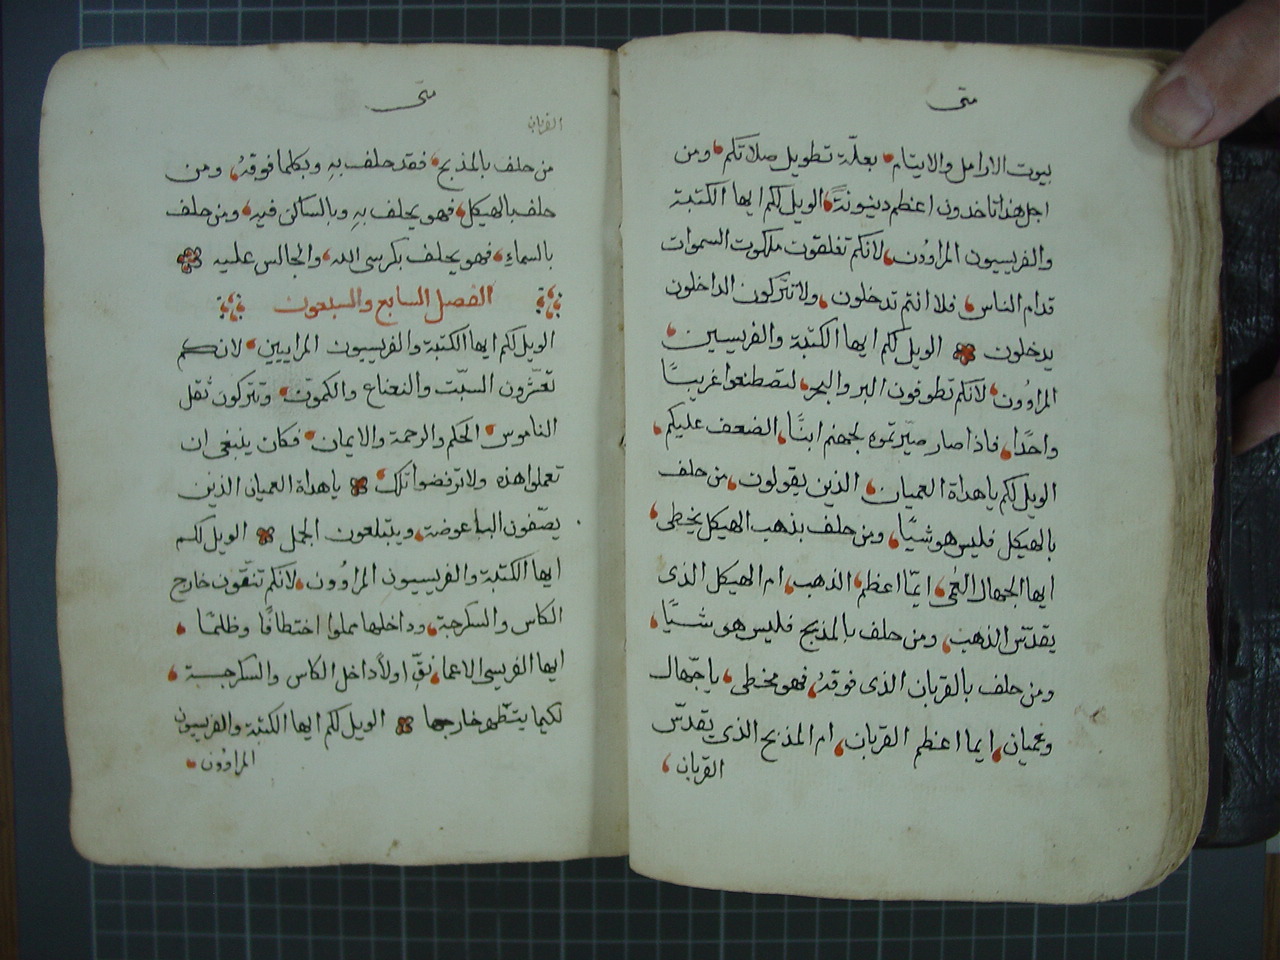 متى
بيوت الارامل والايتام، بعلّة تطويل صلاتكم، ومن
اجل هذا تاخدون اعظم دينونةً، الويل لكم ايها الكتبة
والفريسيون المراوُون، لانكم تغلقون ملكوت السموات
قدام الناس، فلا انتم تدخلون، ولا تتركون الداخلون
يدخلون الويل لكم ايها الكتبة والفريسيين،
المراوُون، لانكم تطوفون البر والبحر، لتصطنعوا غريبًا
واحدًا، فاذا صار صيّرتموه لجهنم ابنًا، الضعف عليكم،
الويل لكم ياهداة العميان، الذين يقولون، من حلف
بالهيكل فليس هو شيًا، ومن حلف بذهب الهيكل يخطى،
ايها الجهال العُمى، ايّما اعظم، الذهب، ام الهيكل الذى
يقدّس الذهب، ومن حلف بالمذبح فليس هو شيًا،
ومن حلف بالقربان الذى فوقهُ، فهو مخطى، ياجّهال
وعميان، ايما اعظم القربان، ام المذبح الذى يقدّس
القربان،
متى
القربان
من حلف بالمذبح، فقد حلف بهِ وبكلما فوقهُ، ومن
حلف بالهيكل، فهو يحلف بهِ وبالساكن فيهِ، ومن حلف
بالسماءِ، فهو يحلف بكرسى الله، والجالس عليه
الفصل السابع والسبعون
الويل لكم ايها الكتبة والفريسيون المراييين، لانكم
تعشّرون السبّت والنعناع والكمون، وتتركون ثقل
الناموس، الحكم والرحمة والايمان، فكان ينبغى ان
تعملوا هذه ولا ترفضوا تلك، ياهداة العميان الذين
يصّفون الباعوضة، ويبتلعون الجمل الويل لكم
ايها الكتبة والفريسيون المراوُون، لانكم تنقّون خارج
الكاس والسكرجة، وداخلها مملوا اختطافًا وظلمًا،
ايها الفريسى الاعما، نقِّ اولاً داخل الكاس والسكرجة،
لكيما يتطّهر خارجها الويل لكم ايها الكتبة والفريسيون
المراوُون،